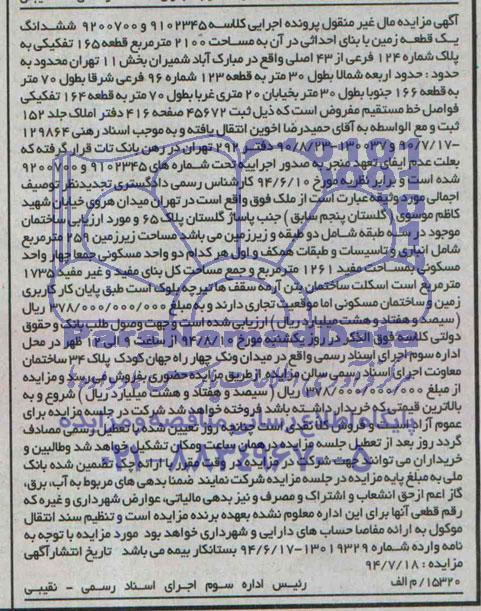 آگهی مزایده مال غیر منقول پرونده اجرایی کلاسه ۹۱۰۲۳۴۵ و ۹۲۰۰۷۰۰ ششدانگ
یک قطعه زمین با بنای احداثی در آن به مساحت ۲۱۰۰ مترمربع قطعه ۱۶۵ تفکیکی به
پلاک شماره ۱۲۴ فرعی از ۴۳ اصلی واقع در مبارک آباد شمیران بخش ۱۱ تهران محدود به
حدود: حدود اربعه شمالا بطول ۳۰ متر به قطعه ۱۲۳ شماره ۹۶ فرعی شرقا بطول ۷۰ متر
به قطعه ۱۶۶ جنوبا بطول ۳۰ متر بخیابان ۲۰ متری غربا بطول ۷۰ متر به قطعه ۱۶۴ تفکیکی
فواصل خط مستقیم مفروض است که ذیل ثبت ۴۵۶۷۲ صفحه ۴۱۶ دفتر املاک جلد ۱۵۲
ثبت و مع الواسطه به آقای حمیدرضا اخوین انتقال یافته و به موجب اسناد رهنی ۱۲۹۸۶۴
-۹۰/۷/۱۷ و ۱۳۰۰۳۷-۹۰/۸/۲۳ دفتر ۲۹۲ تهران در رهن بانک تات قرار گرفته که
بعلت عدم ایفای تعهد منجر به صدور اجراییه تحت شماره های ۹۱۰۲۳۴۵ و ۹۲۰۰۷۰۰
شده است و برابر نظریه مورخ ۹۴/۶/۱۰ کارشناس رسمی دادگستری تجدیدنظر توصیف
اجمالی مورد وثیقه عبارت است از ملک فوق واقع است در تهران میدان هروی خیابان شهید
کاظم موسوی (گلستان پنجم سابق) جنب پاساژ گلستان پلاک ۶۵ و مورد ارزیابی ساختمان
موجود در سه طبقه شامل دو طبقه و زیرزمین می باشد مساحت زیرزمین ۲۵۹ مترمربع
شامل انباری و تاسیسات و طبقات همکف و اول هر کدام دو واحد مسکونی جمعا چهار واحد
مسکونی بمساحت مفید ۱۲۶۱ مترمربع و جمع مساحت کل بنای مفید و غیر مفید ۱۷۳۵
مترمربع است اسکلت ساختمان بتن آرمه سقف ها تیرچه بلوک است طبق پایان کار کاربری
زمین و ساختمان مسکونی اما موقعیت تجاری دارند و به مبلغ ۳۷۸/۰۰۰/۰۰۰/۰۰۰ ریال
(سیصد و هفتاد و هشت میلیارد ریال) ارزیابی شده است و جهت وصول طلب بانک و حقوق
دولتی کلاسه فوق الذکر در روز یکشنبه مورخ ۹۴/۸/۱۰ از ساعت ۹ الی ۱۲ ظهر در محل
اداره سوم اجرای اسناد رسمی واقع در میدان ونک چهار راه جهان کودک پلاک ۳۴ ساختمان
معاونت اجرای اسناد رسمی سالن مزایده از طریق مزایده حضوری بفروش می رسد و مزایده
از مبلغ ۳۷۸/۰۰۰/۰۰۰/۰۰۰ ریال (سیصد و هفتاد و هشت میلیارد ریال) شروع و به
بالاترین قیمتی که خریدار داشته باشد فروخته خواهد شد شرکت در جلسه مزایده برای
عموم آزاد است و فروش کلا نقدی است چنانچه روز تعیین شده با تعطیل رسمی مصادف
گردد روز بعد از تعطیل جلسه مزایده در همان ساعت و مکان تشکیل خواهد شد و طالبین و
خریداران می توانند جهت شرکت در مزایده در وقت مقرر با ارائه چک تضمین شده بانک
ملی به مبلغ پایه مزایده در جلسه مزایده شرکت نمایند ضمنا بدهی های مربوط به آب، برق،
گاز اعم از حق انشعاب و اشتراک و مصرف و نیز بدهی مالیاتی، عوارض شهرداری و غیره که
رقم قطعی آنها برای این اداره معلوم نشده بعهده برنده مزایده است و تنظیم سند انتقال
موکول به ارائه مفاصا حساب های دارایی و شهرداری خواهد بود مورد مزایده با توجه به
نامه وارده شماره ۱۳۰۱۹۳۲۹-۹۴/۶/۱۷ بستانکار بیمه می باشد تاریخ انتشار آگهی
مزایده: ۹۴/۷/۱۸
۱۵۳۲۰/م الف رئیس اداره سوم اجرای اسناد رسمی - نقیبی
پایگاه اطلاع رسانی مناقصه و مزایده
۰۲۱-۸۸۳۴۹۶۷۰-۵